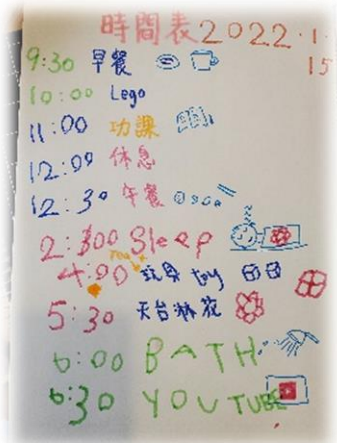 時間表 2022.1.
15
9:30 早餐
10:00 Lego
11:00 功課
12:00 休息
12:30 午餐
2:300 Sleep
4:00 玩具 toy
5:30 天台淋花
6:00 BATH
6:30 YOUTUBE